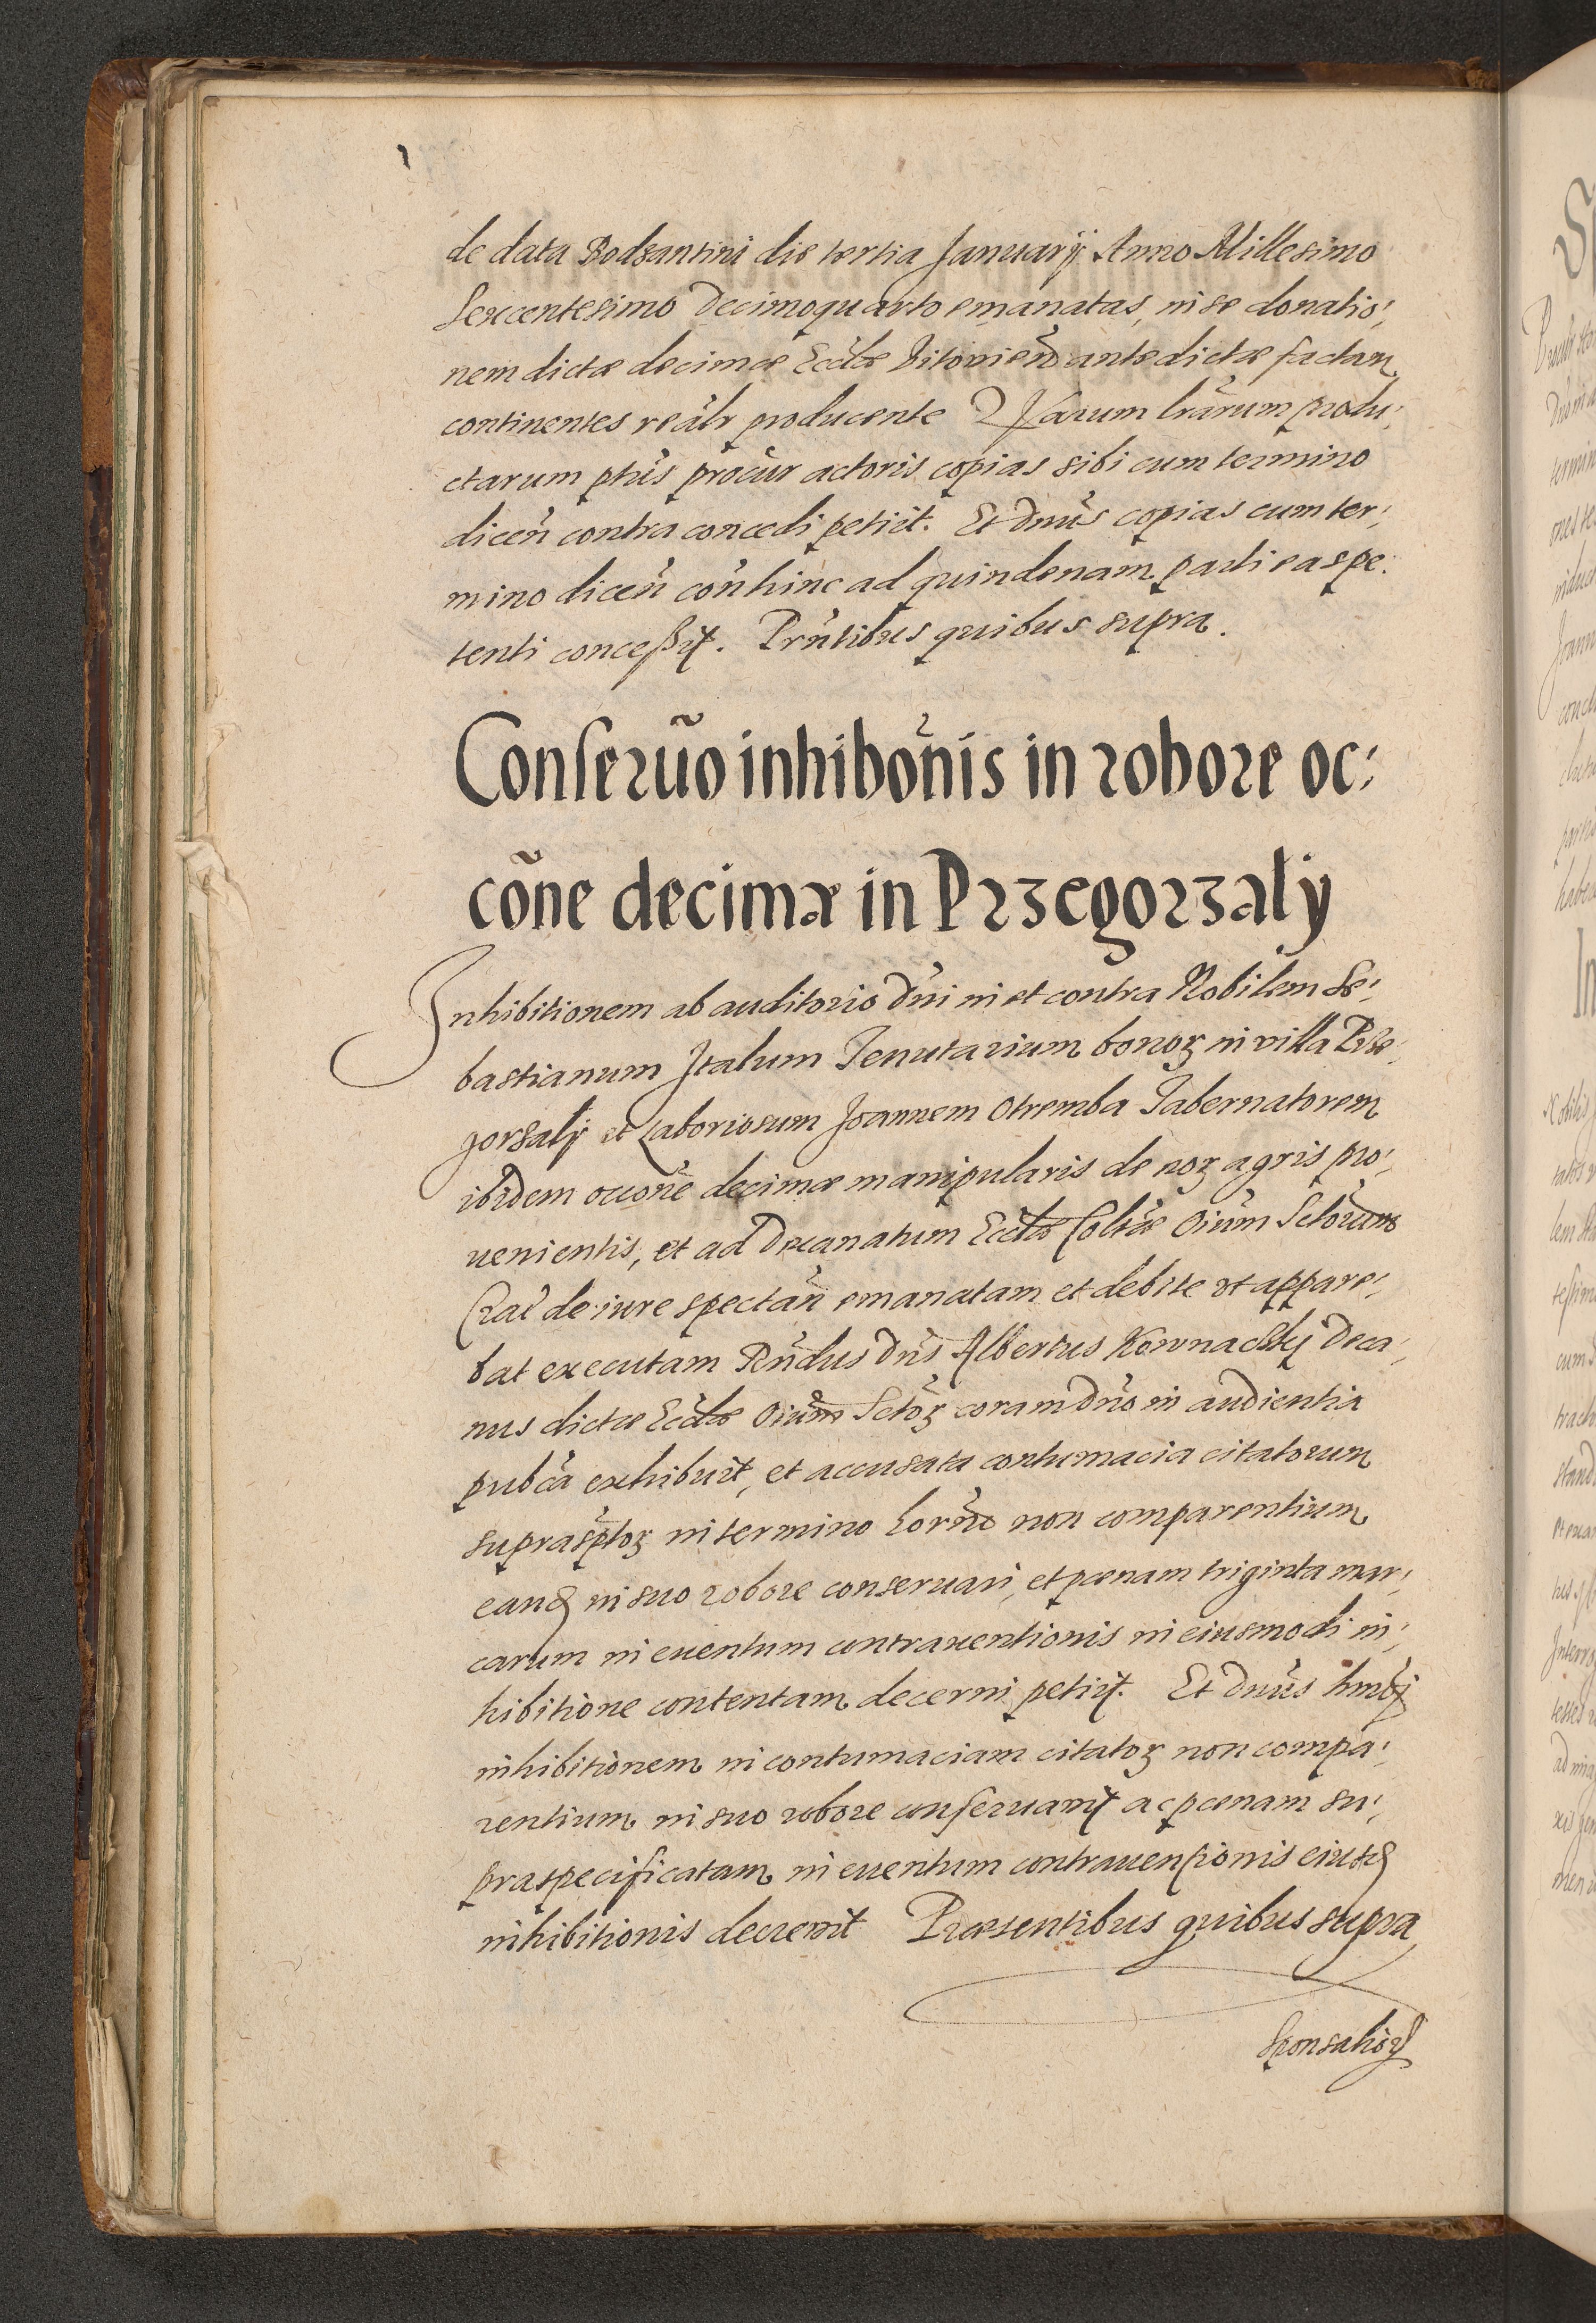 de data Bodzantini die tertia Januarij Anno Millesimo
Sexcentesimo Decimoquarto emanatas, in se donatio:
nem dictæ decimæ Eccl̃æ Vitovien̄ antedictæ factam
continentes realr̃ producente Quarum lr̃arum produ:
ctarum pñs procur̃ actoris copias sibi cum termino
dicen̄ contra concedi petiit. Et Dnũs copias cum ter:
mino dicen̄ con̄ hinc ad quindenam parti eas pe:
tenti conceßit. Prñtibus quibus supra.
Conseruõ inhibõnis in robore oc:
cõne decimæ in Przegorzaly
Inhibitionem ab auditorio Dñi in et contra Nobilem Se:
bastianum Italum Tenutarium bonoꝝ in villa Prze:
gorzaly et Laboriosum Joannem Otremba Tabernatorem
ibidem occõne decimæ manipularis de eoꝝ agris pro:
uenientis, et ad Decanatum Eccl̃æ Coll̃æ Oĩum Sctõrum
Crac̃ de iure spectan̄ emanatam et debite vt appare:
bat executam Rñdus Dñs Albertus Kownaczky Deca:
nus dictæ Eccl̃æ Oĩum Sctõꝝ coram Dño in audientia
publ̃ca exhibuit, et accusata contumacia citatorum
suprasc̃ptoꝝ in termino hor̃no non comparentium
eandẽ in suo robore conseruari, et pœnam triginta mar:
carum in euentum contrauentionis in eiusmodi in:
hibitione contentam decerni petiit. Et Dnũs hm̃oi
inhibitionem in contumaciam citatoꝝ non compa:
rentium in suo robore conseruauit ac pœnam su:
praspecificatam in euentum contrauenționis eiusdẽ
inhibitionis decreuit Præsentibus quibus supra
Sponsalioꝝ